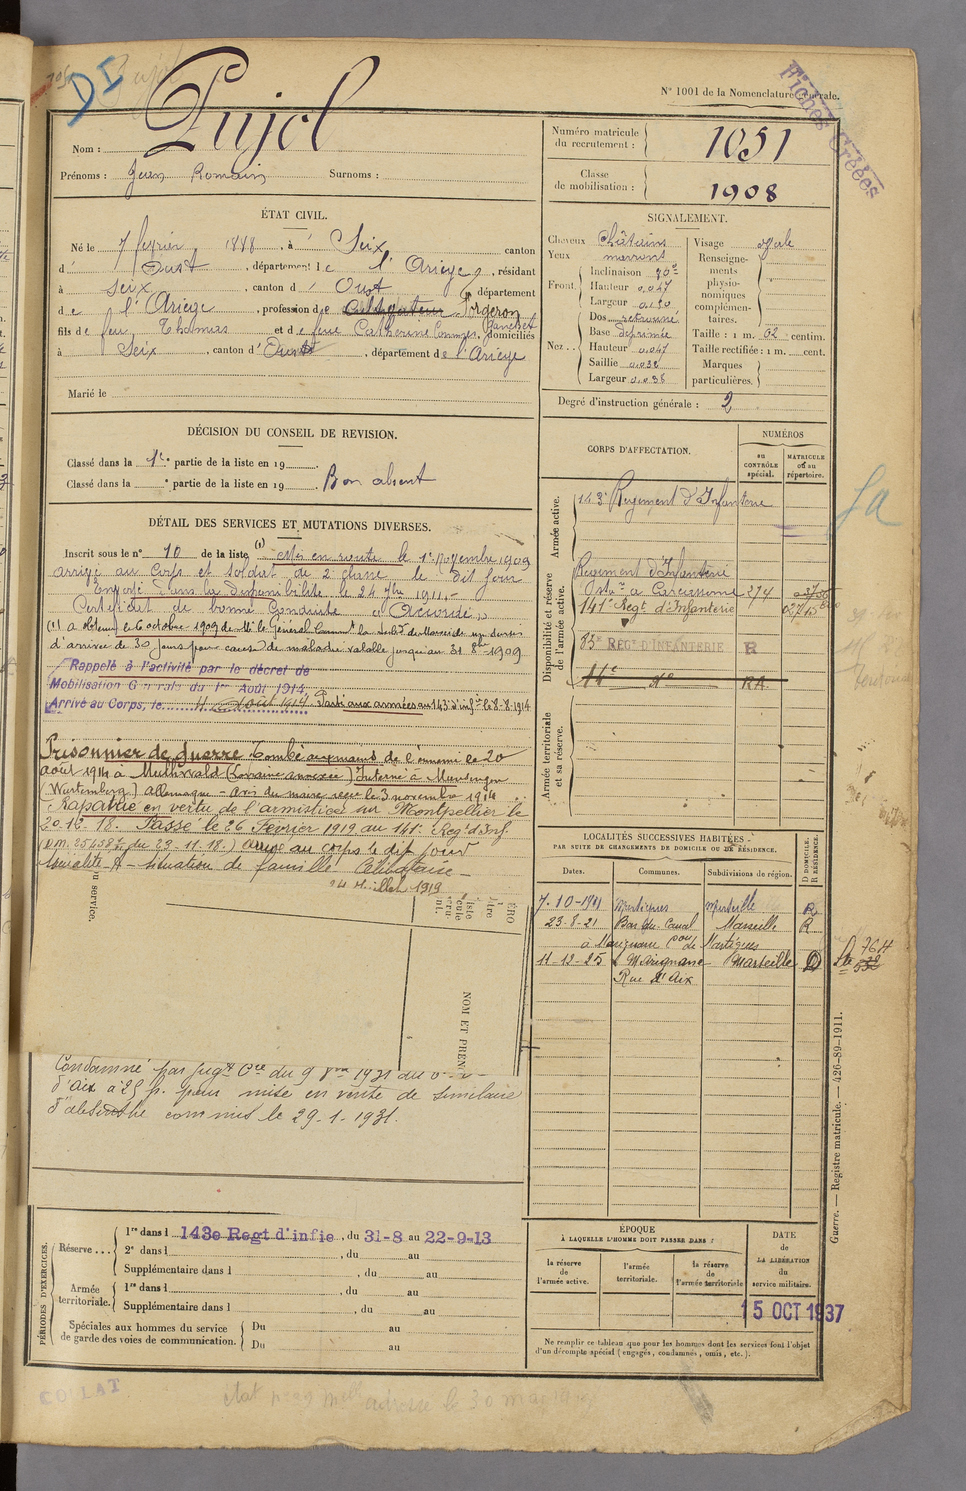 DI
N° 1001 de la Nomenclature Générale.
Fiches Créées
Nom : Pujol
Prénoms : Jean Romain Surnoms :
Numéro matricule du recrutement : 1051
Classe de mobilisation : 1908
ÉTAT CIVIL.
Né le 7 février 1888, à Seix canton
d' Oust, département de l'Ariège, résidant
à Seix, canton d' Oust département
de l'Ariège, profession de Cultivateur Forgeron
fils de feu Thomas et de feue Catherine domiciliés
à Seix, canton d'Oust, département de l'Ariège
Marié le
SIGNALEMENT.
Cheveux Châtains
Yeux marrons
Front. Inclinaison
Hauteur 0.047
Largeur
Nez.. Dos
Base déprimée
Hauteur 0.047
Saillie
Largeur 0.038
Visage ovale
Renseignements physionomiques complémentaires.
Taille : 1 m. 62 centim.
Taille rectifiée : 1 m. cent.
Marques particulières.
Degré d'instruction générale : 2
DÉCISION DU CONSEIL DE REVISION.
Classé dans la 1re partie de la liste en 19
Classé dans la e partie de la liste en 19
Bon absent
DÉTAIL DES SERVICES ET MUTATIONS DIVERSES.
Inscrit sous le n° 10 de la liste (1) Mis en route le 1er Novembre 1909
arrivé au Corps et soldat de 2e classe le dit jour
Envoyé dans la disponibilité le 24 7bre 1911.
Certificat de bonne Conduite "Accordé"
(1) a obtenu le 6 octobre 1909 de Mr le Général un sursis
d'arrivée de 30 jours pour cause de maladie valable jusqu'au 31 8bre 1909
Rappelé à l'activité par le décret de
Mobilisation Générale du 1er Août 1914
Arrivé au Corps, le 4 août 1914 Parti aux armées au 143e d'inf. le 8-8-1914
Prisonnier de guerre Tombé aux mains de l'ennemi le 20
août 1914 à (Lorraine annexée) Interné à Munsingen
(Wurtemberg) Allemagne - avis du maire reçu le 3 novembre 1914
Rapatrié en vertu de l'armistice sur Montpellier le
20.12.18. Passé le 26 Février 1919 au 141e Régt d'Inf.
arrivé au corps le dit jour
situation de famille Célibataire
1919
on service.
NOM ET PRÉN
Condamné par jugt du 9 1931 du
d'Aix à 25 f. pour mise en vente de similaire
d'absinthe commis le 29-1-1931.
CORPS D'AFFECTATION.
NUMÉROS
au CONTRÔLE spécial.
MATRICULE ou au répertoire.
Armée active.
143e Régiment d'Infanterie
Disponibilité et réserve de l'armée active.
Régiment d'Infanterie
à Carcassonne 274
141e Regt d'Infanterie
83e RÉGt D'INFANTERIE R
RA
Armée territoriale et sa réserve.
LOCALITÉS SUCCESSIVES HABITÉES
PAR SUITE DE CHANGEMENTS DE DOMICILE OU DE RÉSIDENCE.
Dates. Communes. Subdivisions de région. D DOMICILE. R RÉSIDENCE.
7-10-1911 Martigues Marseille R
23.8.21 Bar du Canal Marseille R
à Marignane Con de Martigues
11-12-25 Marignane Marseille D
Rue d'Aix
764
Guerre. — Registre matricule. — 426-89-1911.
PÉRIODES D'EXERCICES.
Réserve... 1re dans l 143e Regt d'infie, du 31-8 au 22-9-13
2e dans l , du au
Supplémentaire dans l , du au
Armée territoriale. 1re dans l , du au
Supplémentaire dans l , du au
Spéciales aux hommes du service de garde des voies de communication. Du au
Du au
ÉPOQUE
À LAQUELLE L'HOMME DOIT PASSER DANS :
la réserve de l'armée active.
l'armée territoriale.
la réserve de l'armée territoriale
DATE de LA LIBÉRATION du service militaire.
15 OCT 1937
Ne remplir ce tableau que pour les hommes dont les services font l'objet
d'un décompte spécial (engagés, condamnés, omis, etc.).